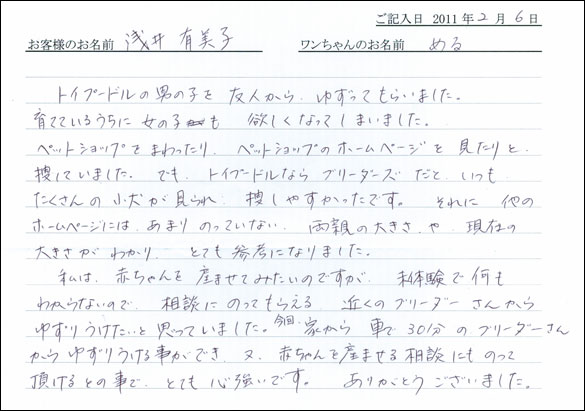 ご記入日 2011年2月6日
お客様のお名前 浅井 有美子 ワンちゃんのお名前 める
トイプードルの男の子を 友人から ゆずってもらいました。
育てているうちに 女の子も 欲しくなってしまいました。
ペットショップをまわったり、ペットショップのホームページを見たりと、
捜していました。でも、トイプードルならブリーダーズだと、いつも
たくさんの小犬が見られ、捜しやすかったです。それに 他の
ホームページには、あまりのっていない、両親の大きさや、現在の
大きさがわかり、とても参考になりました。
私は、赤ちゃんを産ませてみたいのですが、未体験で何も
わからないので、相談にのってもらえる 近くのブリーダーさんから
ゆずりうけたいと思っていました。今回、家から車で30分のブリーダーさん
からゆずりうける事ができ、又、赤ちゃんを産ませる相談にものって
頂けるとの事で、とても心強いです。 ありがとうございました。